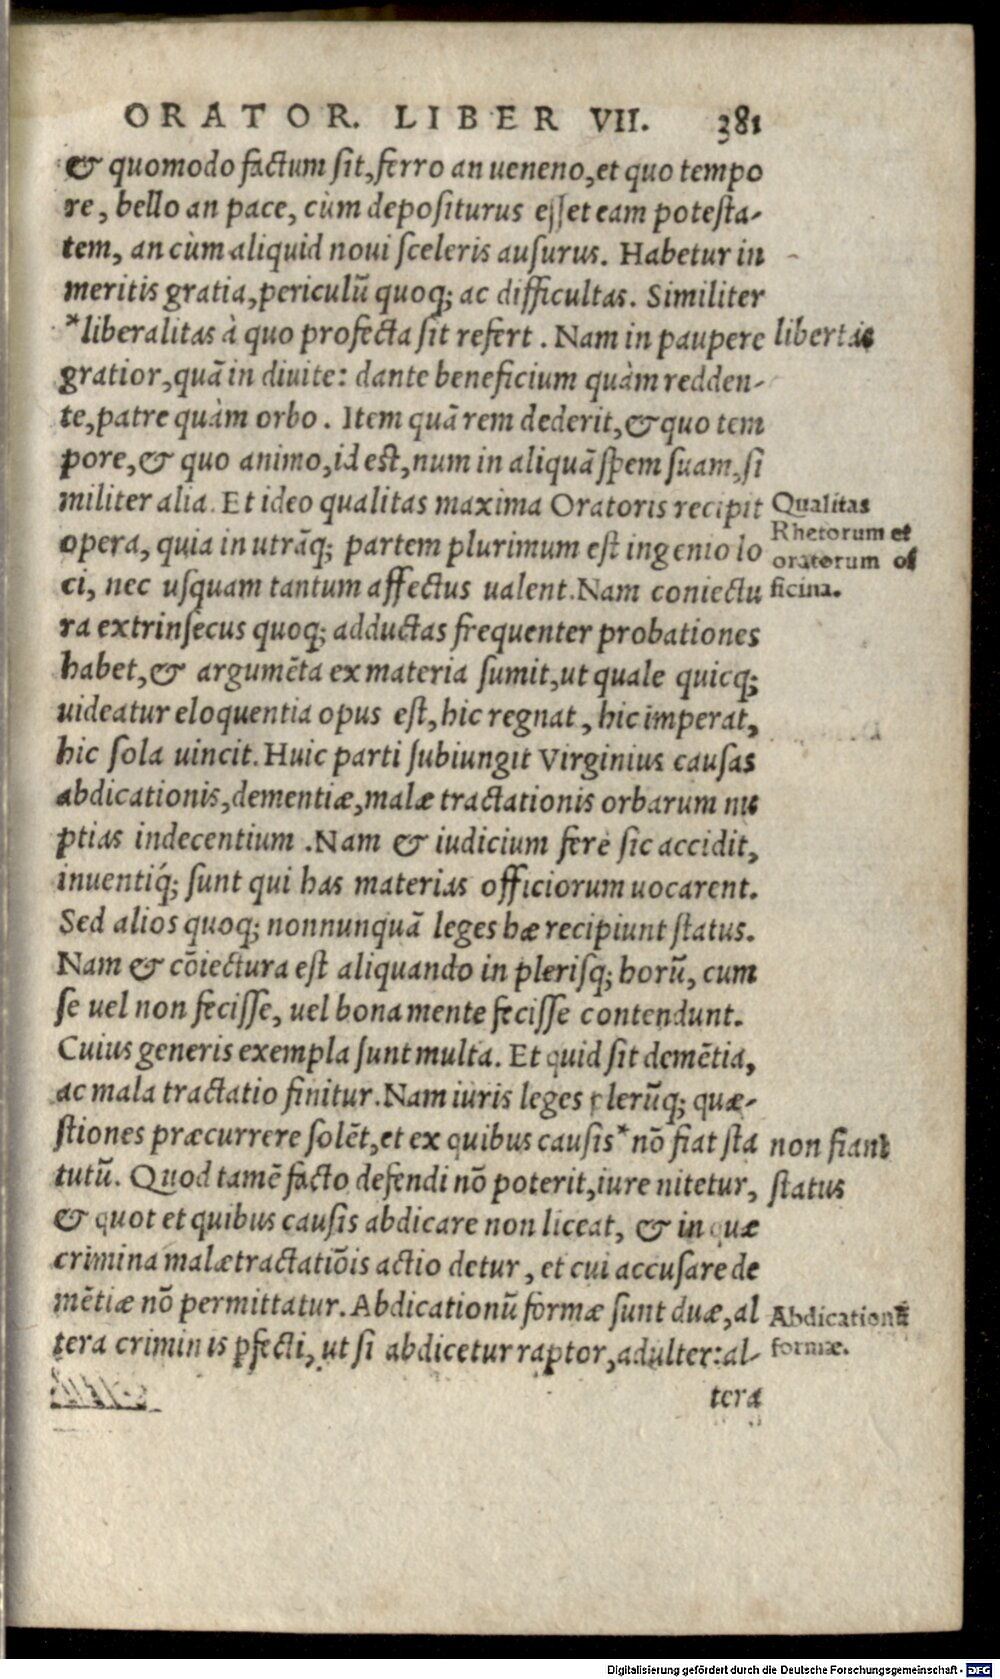 ORATOR. LIBER VII. 381
& quomodo factum sit, ferro an ueneno, et quo tempo
re, bello an pace, cùm depositurus esset eam potesta-
tem, an cùm aliquid noui sceleris ausurus. Habetur in
meritis gratia, periculū quoq; ac difficultas. Similiter
*liberalitas à quo profecta sit refert. Nam in paupere
libertas
gratior, quā in diuite: dante beneficium quàm redden-
te, patre quàm orbo. Item quā rem dederit, & quo tem
pore, & quo animo, id est, num in aliquā spem suam, si
militer alia. Et ideo qualitas maxima Oratoris recipit
opera, quia in utrāq; partem plurimum est ingenio lo
ci, nec usquam tantum affectus ualent. Nam coniectu
Qualitas
Rhetorum et
oratorum of
ficina.
ra extrinsecus quoq; adductas frequenter probationes
habet, & argumēta ex materia sumit, ut quale quicq;
uideatur eloquentia opus est, hic regnat, hic imperat,
hic sola uincit. Huic parti subiungit Virginius causas
abdicationis, dementiæ, malæ tractationis orbarum nu
ptias indecentium. Nam & iudicium ferè sic accidit,
inuentiq́; sunt qui has materias officiorum uocarent.
Sed alios quoq; nonnunquā leges hæ recipiunt status.
Nam & cōiectura est aliquando in plerisq; horū, cum
se uel non fecisse, uel bona mente fecisse contendunt.
Cuius generis exempla sunt multa. Et quid sit demētia,
ac mala tractatio finitur. Nam iuris leges plerūq; quæ-
stiones præcurrere solēt, et ex quibus causis* nō fiat sta
non fiant
tutū. Quod tamē facto defendi nō poterit, iure nitetur,
status
& quot et quibus causis abdicare non liceat, & in quæ
crimina malæ tractatiōis actio detur, et cui accusare de
mētiæ nō permittatur. Abdicationū formæ sunt duæ, al
Abdicationū
formæ.
tera criminis pfecti, ut si abdicetur raptor, adulter: al-
tera
Digitalisierung gefördert durch die Deutsche Forschungsgemeinschaft - DFG